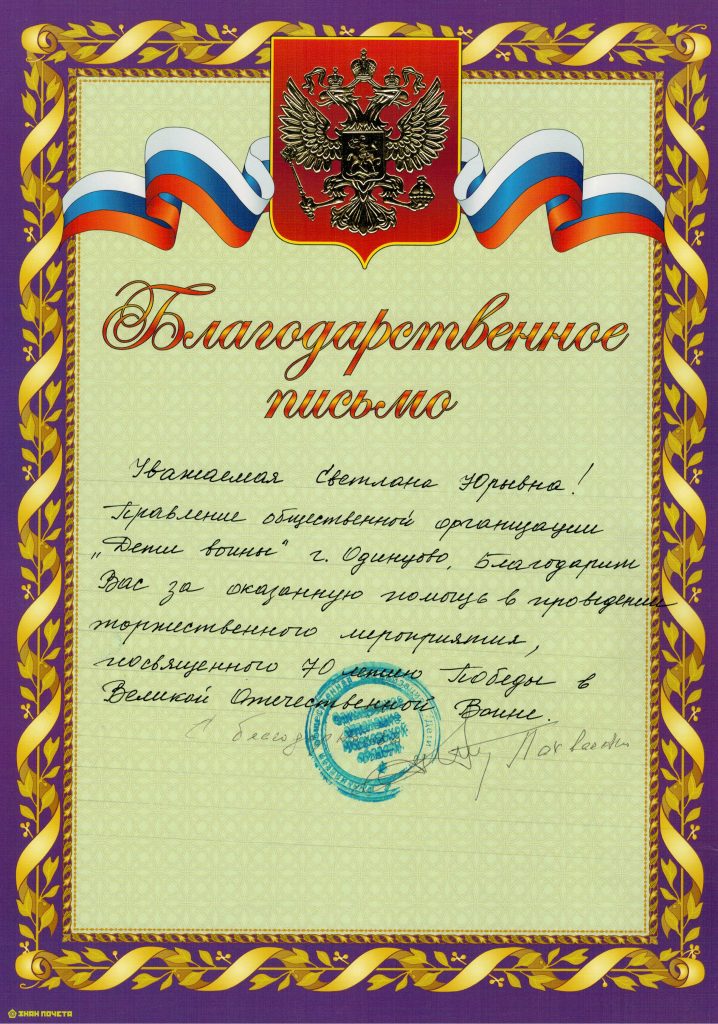 Благодарственное
письмо
Уважаемая Светлана Юрьвна!
Правление общественной организации
„Дети войны" г. Одинцово, Благодарит
Вас за оказанную помощь в проведении
торжественного мероприятия,
посвященного 70 летию Победы в
Великой Отечественной Воине.
С
"Дети
ЗНАК ПОЧЕТА